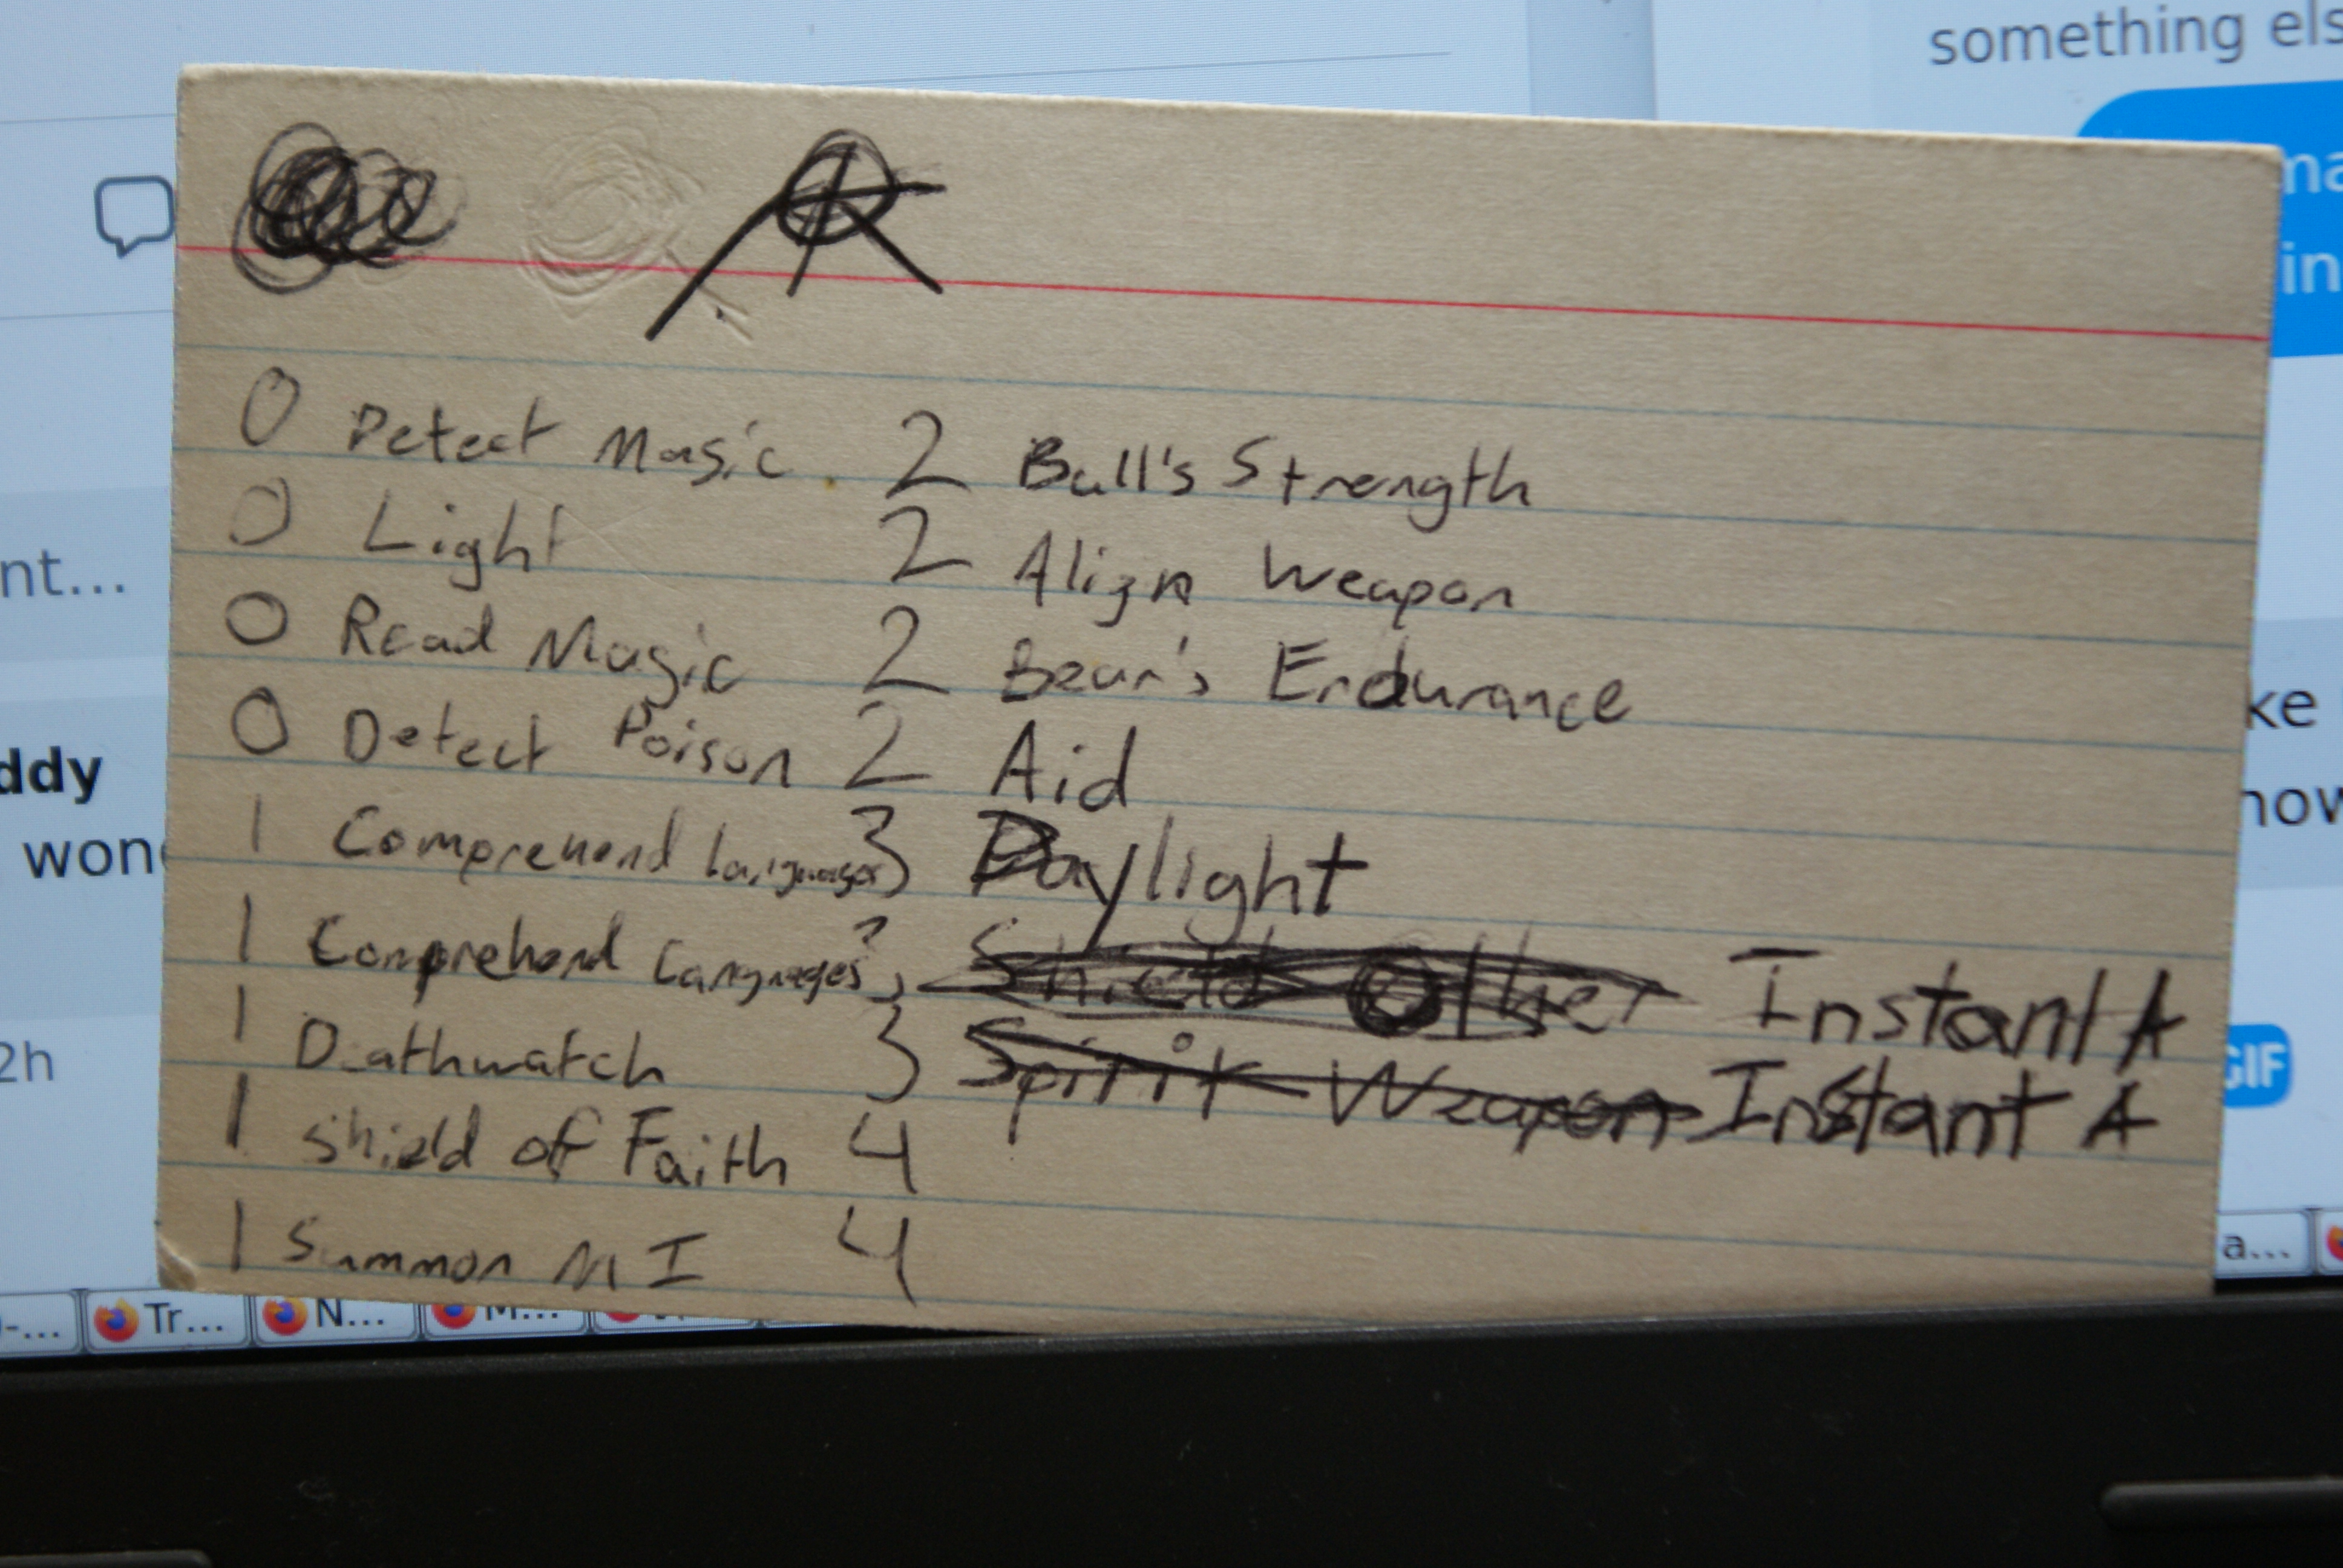 something els
ma
in
0 Detect Magic 2 Bull's Strength
0 Light 2 Align Weapon
nt...
0 Read Magic 2 Bear's Endurance
ke
0 Detect Poison 2 Aid
ddy
how
1 Comprehend Languages 3 Daylight
won
1 Comprehend Languages 3 Shield Other Instant A
1 Deathwatch 3 Spirit Weapon Instant A
2h
GIF
1 Shield of Faith 4
1 Summon M I 4
a...
-...
Tr...
N...
M...